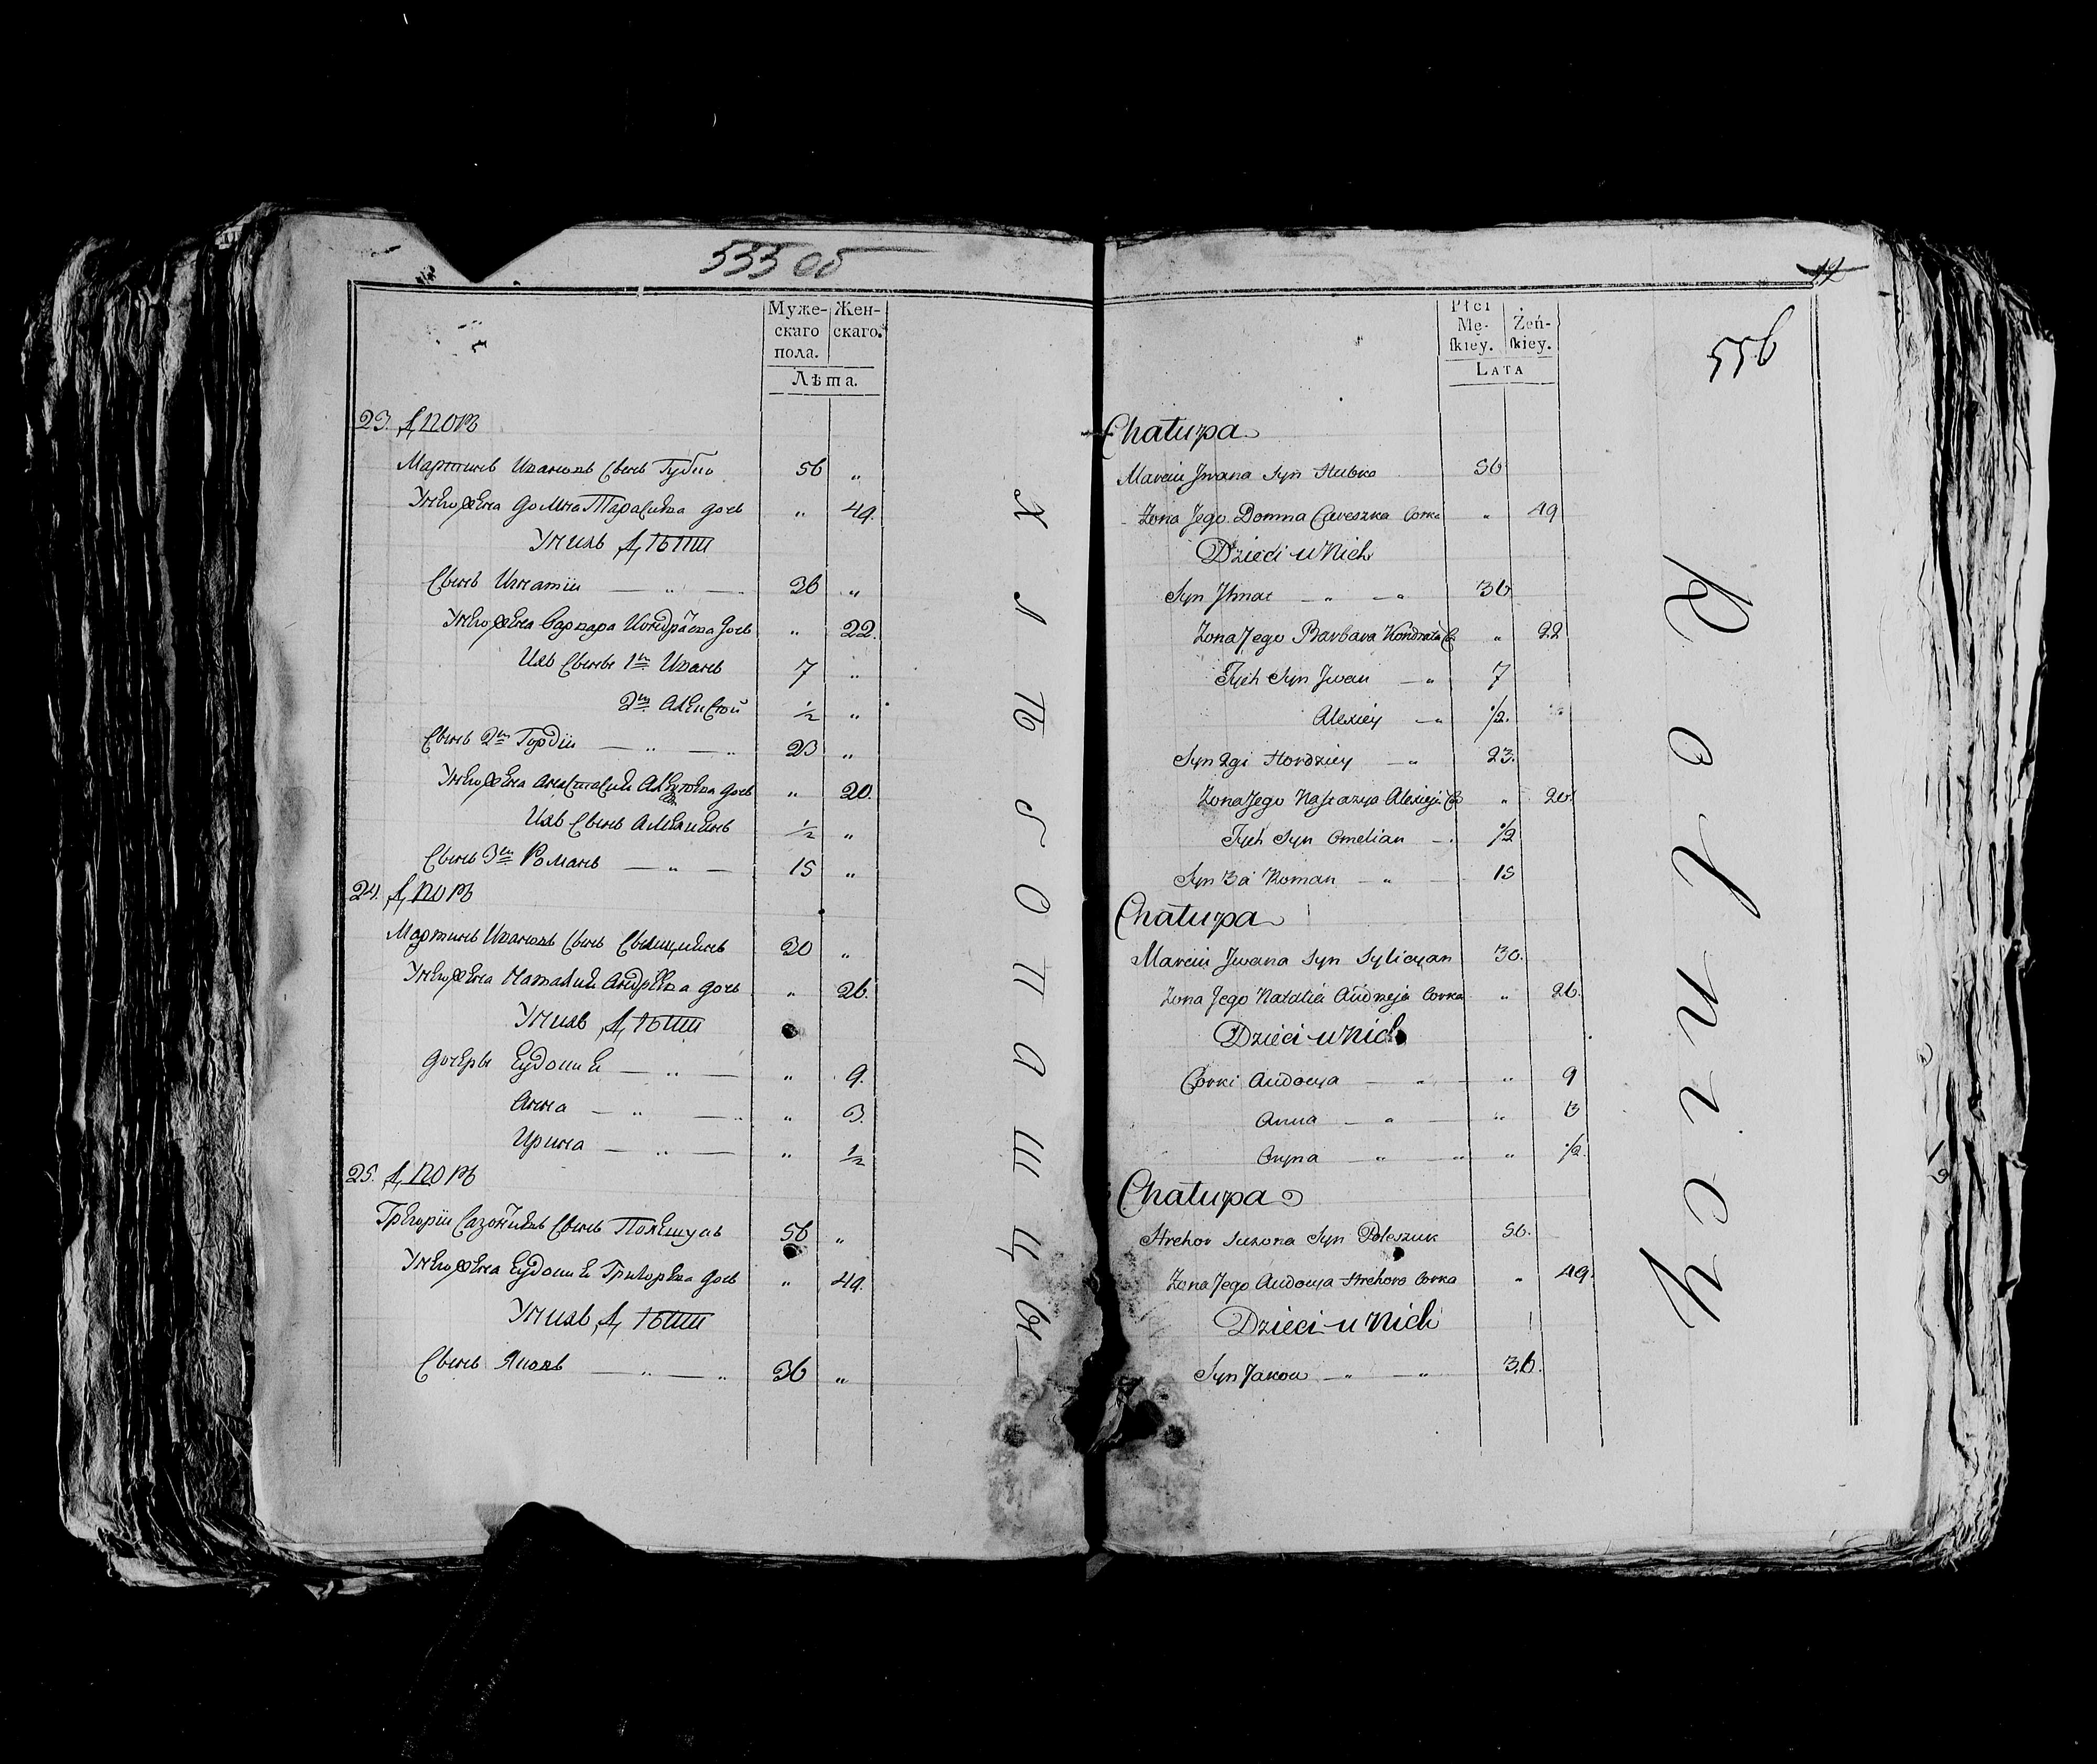 533 об
Муже-
скаго
пола.
Жен-
скаго.
Лѣта.
23. Дворъ
Мартинъ Ивановъ сынъ Губко 56 „
У него жена Домна Тарасивна дочь „ 49.
У нихъ дѣти
Сынъ Игнатіи 36 „
У него жена Варвара Кондратьева дочь „ 22.
Ихъ сыны 1й Иванъ 7 „
2й Алексей ½ „
Сынъ 2й Гордіи 23 „
У него жена Анастасия дочь „ 20.
Ихъ сынъ Амелиянъ ½ „
Сынъ 3й Романъ 15 „
24. Дворъ
Мартинъ Ивановъ сынъ 30 „
У него жена Наталия Андреева дочь „ 26.
У нихъ дѣти
дочеры Еудокия „ 9.
Анна „ 3.
Ирина „ ½
25. Дворъ
Грегории сынъ Полешукъ 56 „
У него жена Еудокия Григорева дочь „ 49.
У нихъ дѣти
Сынъ Яковъ 36 „
Х л ѣ б о п а ш ц ы
49
556
Płci
Mę-
ſkiey.
Żeń-
ſkiey.
LATA
Chatupa
Marcin Jwana Syn Hubko 56
Zona Jego Domna Corka „ 49
Dzieci u Nich
Syn Jhnat „ „ 36
Zona Jego Barbara Kondrata C „ 22
Tych Syn Jwan „ 7
Alexiey „ ½.
Syn 2gi Hordziey „ 23.
Zona Jego Nastazya Alexieja Co „ 20.
Tych Syn Omelian ½
Syn 3ci Roman „ 15
Chatupa
Marcin Jwana Syn Sylicyan 30.
Zona Jego Natalia Andrzeja Corka „ 26.
Dzieci u Nich
Corki Audocya „ „ 9
Anna „ „ 3
Oryna „ „ „ ½.
Chatupa
Hrehor Sazona Syn Poleszuk 56.
Zona Jego Audocya Hrehora Corka „ 49.
Dzieci u Nich
Syn Jakow „ „ 36.
R o l n i c y